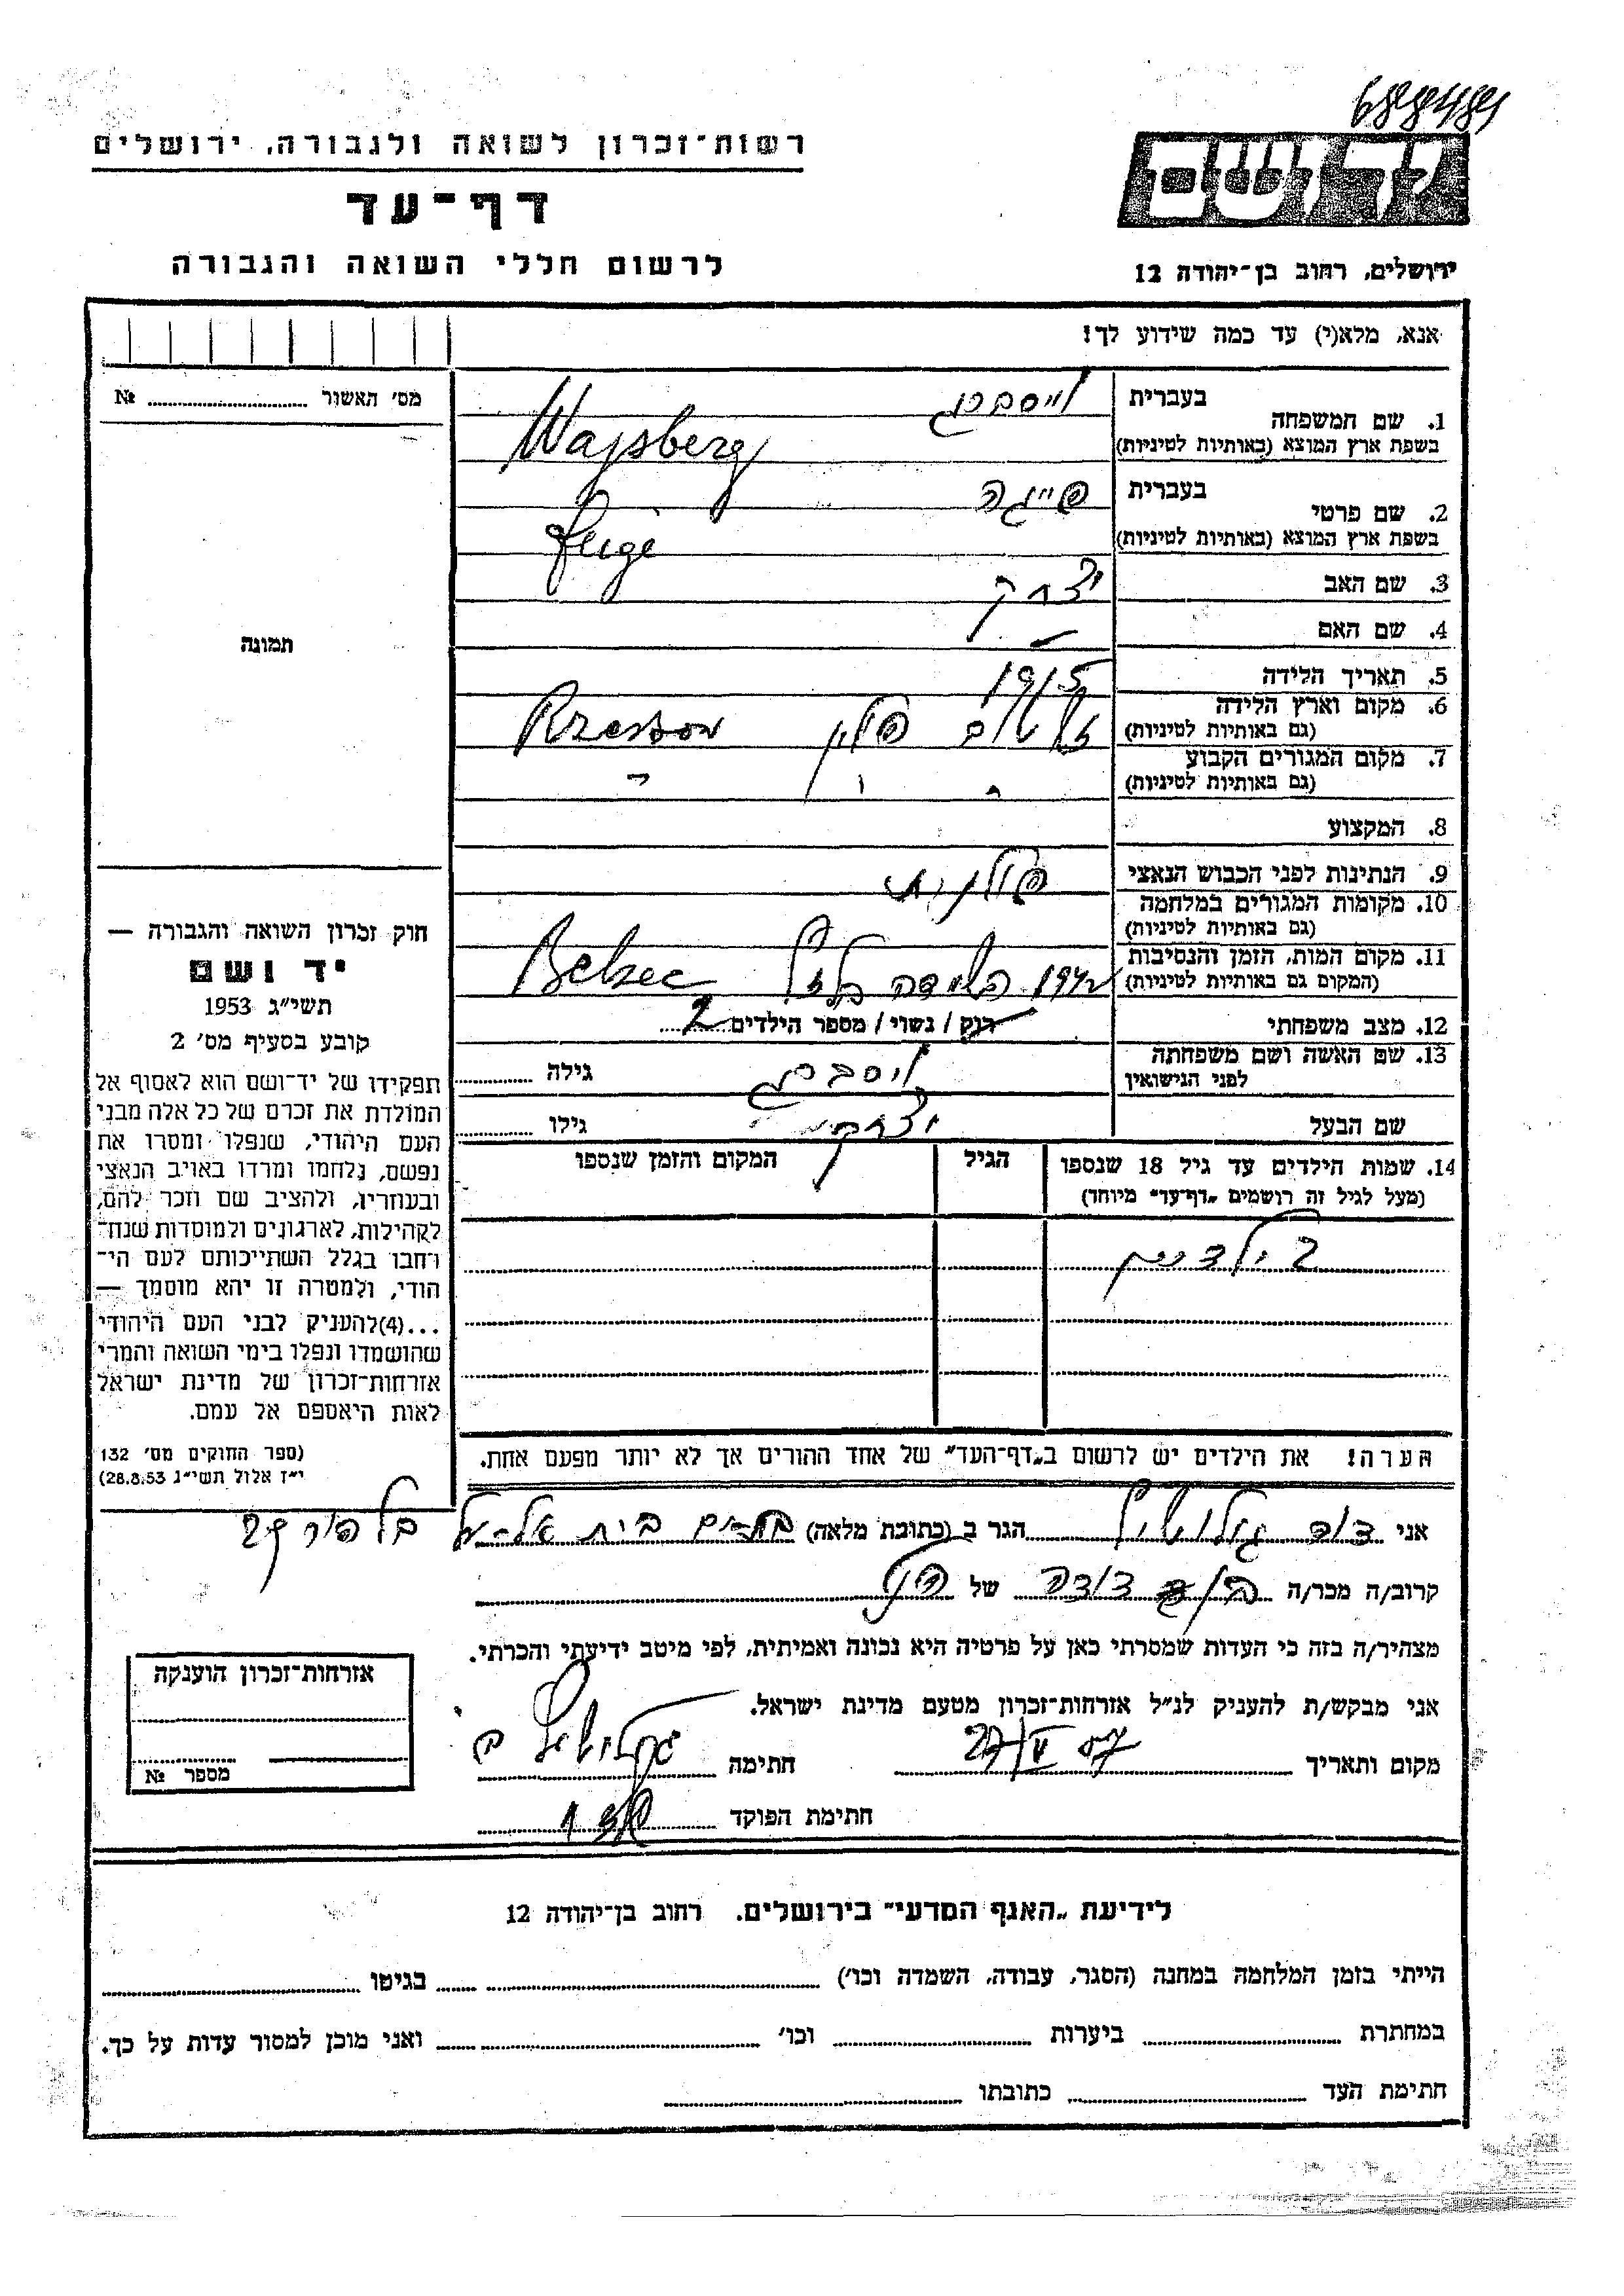 688489
רשות־זכרון לשואה ולגבורה, ירושלים
דף־עד
לרשום חללי השואה והגבורה
יד ושם
ירושלים, רחוב בן־יהודה 12
אנא, מלא(י) עד כמה שידוע לך!
מס׳ תאשור № ..........
תמונה
1. שם המשפחה בעברית וייסברג
בשפת ארץ המוצא (באותיות לטיניות) Wajsberg
2. שם פרטי בעברית פייגה
בשפת ארץ המוצא (באותיות לטיניות) Feige
3. שם האב יצחק
4. שם האם
5. תאריך הלידה 1915
6. מקום וארץ הלידה (גם באותיות לטיניות) פולין Rzeszow
7. מקום המגורים הקבוע (גם באותיות לטיניות) " " "
8. המקצוע
9. הנתינות לפני הכבוש הנאצי פולנית
10. מקומות המגורים במלחמה (גם באותיות לטיניות)
11. מקום המות, הזמן והנסיבות (המקום גם באותיות לטיניות) 1942 השמדה בלזץ Belzec
12. מצב משפחתי רוק / נשוי / מספר הילדים 2
13. שם האשה ושם משפחתה לפני הנישואין וייסברג גילה ..........
שם הבעל יצחק גילו ..........
14. שמות הילדים עד גיל 18 שנספו
(מעל לגיל זה רושמים „דף־עד" מיוחד)
הגיל
המקום והזמן שנספו
2 ילדים
חוק זכרון השואה והגבורה —
יד ושם
תשי״ג 1953
קובע בסעיף מס׳ 2
תפקידו של יד־ושם הוא לאסוף אל
המולדת את זכרם של כל אלה מבני
העם היהודי, שנפלו ומסרו את
נפשם, נלחמו ומרדו באויב הנאצי
ובעוזריו, ולהציב שם וזכר להם,
לקהילות, לארגונים ולמוסדות שנח־
רחבו בגלל השתייכותם לעם הי־
הודי, ולמטרה זו יהא מוסמך —
...(4)להעניק לבני העם היהודי
שהושמדו ונפלו בימי השואה והמרי
אזרחות־זכרון של מדינת ישראל
לאות היאספם אל עמם.
(ספר החוקים מס׳ 132
י״ז אלול תשי״ג 28.8.53)
הערה! את הילדים יש לרשום ב„דף־העד" של אחד ההורים אך לא יותר מפעם אחת.
אני דוד הגר ב (כתובת מלאה) בת־ים בלפור
קרוב/ה מכר/ה בן דודה של הנ״ל
מצהיר/ה בזה כי העדות שמסרתי כאן על פרטיה היא נכונה ואמיתית, לפי מיטב ידיעתי והכרתי.
אני מבקש/ת להעניק לנ״ל אזרחות־זכרון מטעם מדינת ישראל.
מקום ותאריך 27/V 57 חתימה
חתימת הפוקד
אזרחות־זכרון הוענקה
מספר №
לידיעת „האגף המדעי" בירושלים. רחוב בן־יהודה 12
הייתי בזמן המלחמה במחנה (הסגר, עבודה, השמדה וכו׳) .......... בגיטו ..........
במחתרת .......... ביערות .......... וכו׳ .......... ואני מוכן למסור עדות על כך.
חתימת העד .......... כתובתו ..........